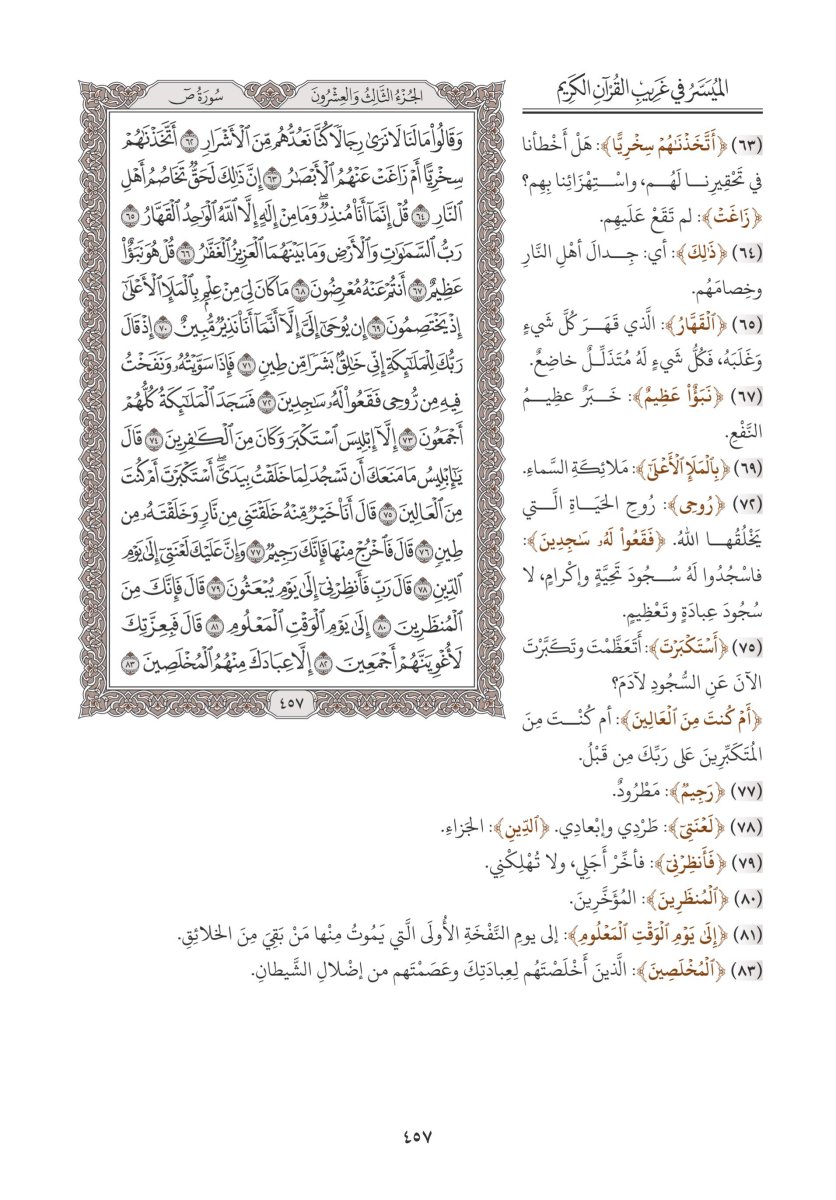 الميسر في غريب القرآن الكريم
الجزء الثالث والعشرون
سورة ص
وَقَالُوا۟ مَا لَنَا لَا نَرَىٰ رِجَالًا كُنَّا نَعُدُّهُم مِّنَ ٱلْأَشْرَارِ ٦٢ أَتَّخَذْنَٰهُمْ
سِخْرِيًّا أَمْ زَاغَتْ عَنْهُمُ ٱلْأَبْصَٰرُ ٦٣ إِنَّ ذَٰلِكَ لَحَقٌّ تَخَاصُمُ أَهْلِ
ٱلنَّارِ ٦٤ قُلْ إِنَّمَآ أَنَا۠ مُنذِرٌ ۖ وَمَا مِنْ إِلَٰهٍ إِلَّا ٱللَّهُ ٱلْوَٰحِدُ ٱلْقَهَّارُ ٦٥
رَبُّ ٱلسَّمَٰوَٰتِ وَٱلْأَرْضِ وَمَا بَيْنَهُمَا ٱلْعَزِيزُ ٱلْغَفَّٰرُ ٦٦ قُلْ هُوَ نَبَؤٌا۟
عَظِيمٌ ٦٧ أَنتُمْ عَنْهُ مُعْرِضُونَ ٦٨ مَا كَانَ لِىَ مِنْ عِلْمٍۭ بِٱلْمَلَإِ ٱلْأَعْلَىٰٓ
إِذْ يَخْتَصِمُونَ ٦٩ إِن يُوحَىٰٓ إِلَىَّ إِلَّآ أَنَّمَآ أَنَا۠ نَذِيرٌ مُّبِينٌ ٧٠ إِذْ قَالَ
رَبُّكَ لِلْمَلَٰٓئِكَةِ إِنِّى خَٰلِقٌۢ بَشَرًا مِّن طِينٍ ٧١ فَإِذَا سَوَّيْتُهُۥ وَنَفَخْتُ
فِيهِ مِن رُّوحِى فَقَعُوا۟ لَهُۥ سَٰجِدِينَ ٧٢ فَسَجَدَ ٱلْمَلَٰٓئِكَةُ كُلُّهُمْ
أَجْمَعُونَ ٧٣ إِلَّآ إِبْلِيسَ ٱسْتَكْبَرَ وَكَانَ مِنَ ٱلْكَٰفِرِينَ ٧٤ قَالَ
يَٰٓإِبْلِيسُ مَا مَنَعَكَ أَن تَسْجُدَ لِمَا خَلَقْتُ بِيَدَىَّ ۖ أَسْتَكْبَرْتَ أَمْ كُنتَ
مِنَ ٱلْعَالِينَ ٧٥ قَالَ أَنَا۠ خَيْرٌ مِّنْهُ ۖ خَلَقْتَنِى مِن نَّارٍ وَخَلَقْتَهُۥ مِن
طِينٍ ٧٦ قَالَ فَٱخْرُجْ مِنْهَا فَإِنَّكَ رَجِيمٌ ٧٧ وَإِنَّ عَلَيْكَ لَعْنَتِىٓ إِلَىٰ يَوْمِ
ٱلدِّينِ ٧٨ قَالَ رَبِّ فَأَنظِرْنِىٓ إِلَىٰ يَوْمِ يُبْعَثُونَ ٧٩ قَالَ فَإِنَّكَ مِنَ
ٱلْمُنظَرِينَ ٨٠ إِلَىٰ يَوْمِ ٱلْوَقْتِ ٱلْمَعْلُومِ ٨١ قَالَ فَبِعِزَّتِكَ
لَأُغْوِيَنَّهُمْ أَجْمَعِينَ ٨٢ إِلَّا عِبَادَكَ مِنْهُمُ ٱلْمُخْلَصِينَ ٨٣
٤٥٧
(٦٣) ﴿أَتَّخَذْنَٰهُمْ سِخْرِيًّا﴾: هَلْ أَخْطأنا
في تَحْقِيرِنا لَهُم، واسْتِهْزَائِنا بِهِم؟
﴿زَاغَتْ﴾: لم تَقَعْ عَلَيهِم.
(٦٤) ﴿ذَٰلِكَ﴾: أي: جِدالَ أهْلِ النَّارِ
وخِصامَهُم.
(٦٥) ﴿ٱلْقَهَّارُ﴾: الَّذي قَهَرَ كُلَّ شَيءٍ
وَغَلَبَهُ، فَكُلُّ شَيءٍ لَهُ مُتَذَلِّلٌ خاضِعٌ.
(٦٧) ﴿نَبَؤٌا۟ عَظِيمٌ﴾: خَبَرٌ عظِيمُ
النَّفْعِ.
(٦٩) ﴿بِٱلْمَلَإِ ٱلْأَعْلَىٰٓ﴾: مَلائِكَةِ السَّماءِ.
(٧٢) ﴿رُّوحِى﴾: رُوحِ الحَيَاةِ الَّتي
يَخْلُقُها اللهُ. ﴿فَقَعُوا۟ لَهُۥ سَٰجِدِينَ﴾:
فاسْجُدُوا لَهُ سُجُودَ تَحِيَّةٍ وإكْرامٍ، لا
سُجُودَ عِبادَةٍ وتَعْظِيمٍ.
(٧٥) ﴿أَسْتَكْبَرْتَ﴾: أَتَعَظَّمْتَ وتَكَبَّرْتَ
الآنَ عَنِ السُّجُودِ لآدَمَ؟
﴿أَمْ كُنتَ مِنَ ٱلْعَالِينَ﴾: أم كُنْتَ مِنَ
المُتَكَبِّرِينَ عَلى رَبِّكَ مِن قَبْلُ.
(٧٧) ﴿رَجِيمٌ﴾: مَطْرُودٌ.
(٧٨) ﴿لَعْنَتِىٓ﴾: طَرْدِي وإبْعادِي. ﴿ٱلدِّينِ﴾: الجَزاءِ.
(٧٩) ﴿فَأَنظِرْنِىٓ﴾: فأخِّرْ أَجَلِي، ولا تُهْلِكْنِي.
(٨٠) ﴿ٱلْمُنظَرِينَ﴾: المُؤَخَّرِينَ.
(٨١) ﴿إِلَىٰ يَوْمِ ٱلْوَقْتِ ٱلْمَعْلُومِ﴾: إلى يومِ النَّفْخَةِ الأُولَى الَّتي يَمُوتُ مِنْها مَنْ بَقِيَ مِنَ الخلائِقِ.
(٨٣) ﴿ٱلْمُخْلَصِينَ﴾: الَّذينَ أَخْلَصْتَهُم لِعِبادَتِكَ وعَصَمْتَهم من إضْلالِ الشَّيطانِ.
٤٥٧